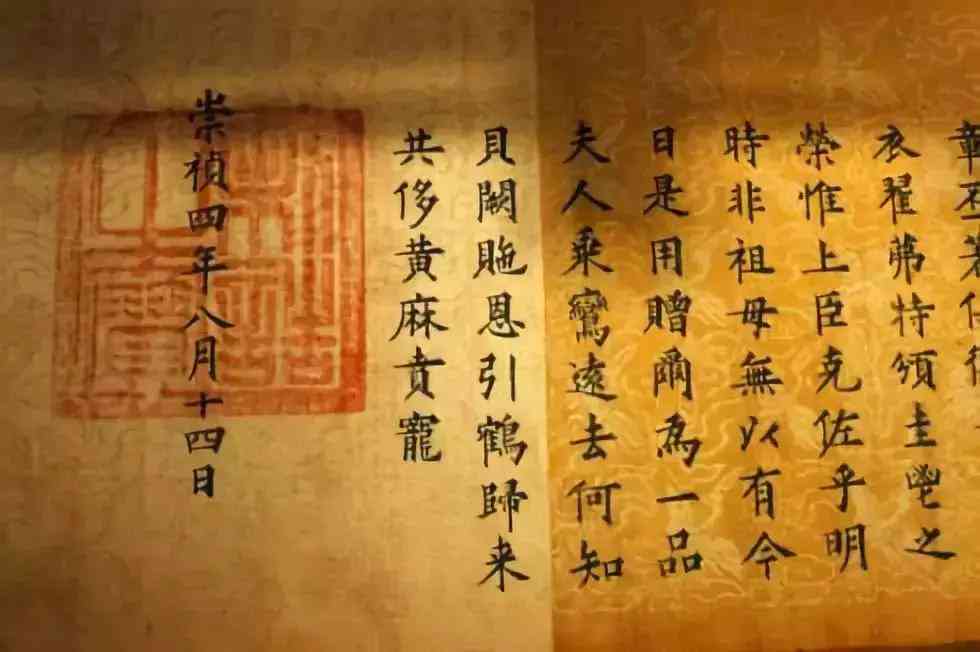 衣翟茀特頒圭鬯之
榮惟上臣克佐乎明
時非祖母無以有今
日是用贈爾為一品
夫人乘鸞遠去何知
貝闕貤恩引鶴歸来
共侈黄麻賁寵
崇禎四年八月十四日
制誥之寶